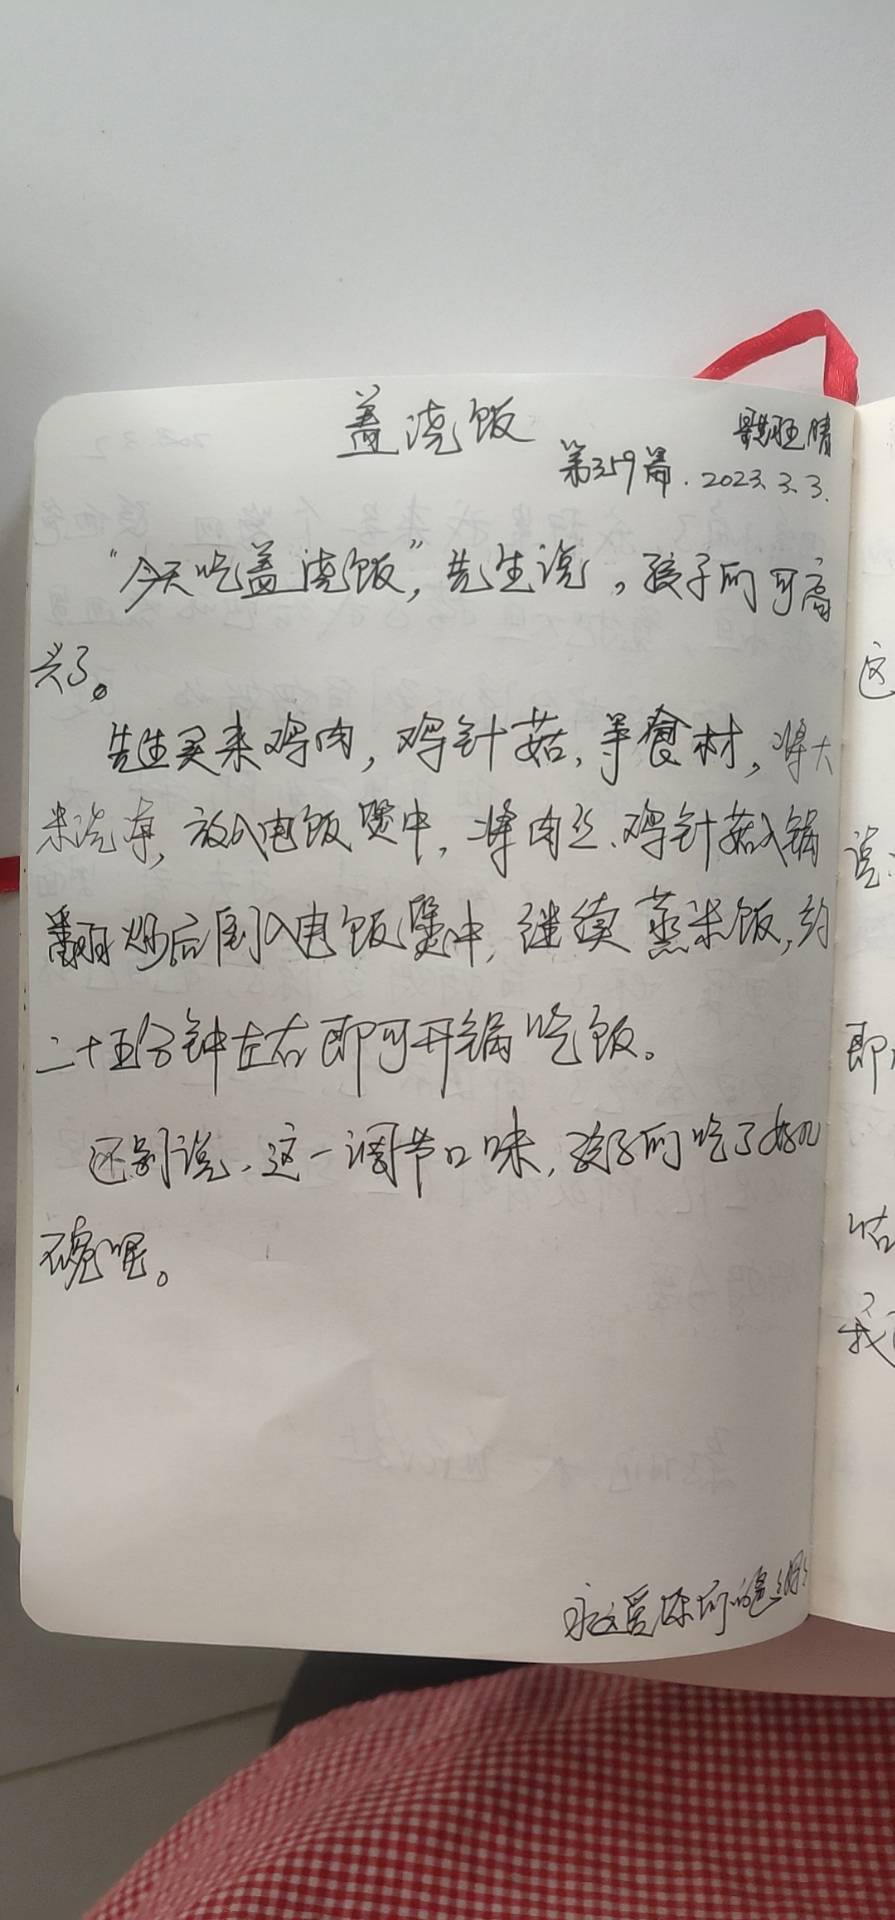 盖浇饭
星期五 晴
第359篇. 2023.3.3.
“今天吃盖浇饭”,先生说,孩子们可高
兴了。
先生买来鸡肉,鸡针菇,等食材,将大
米洗净,放入电饭煲中,将肉丝、鸡针菇入锅
翻炒后倒入电饭煲中,继续蒸米饭,约
二十五分钟左右即可开锅吃饭。
还别说,这一调节口味,孩子们吃了好几
碗呢。
永远爱你们的爸妈
这
说
即
估
我